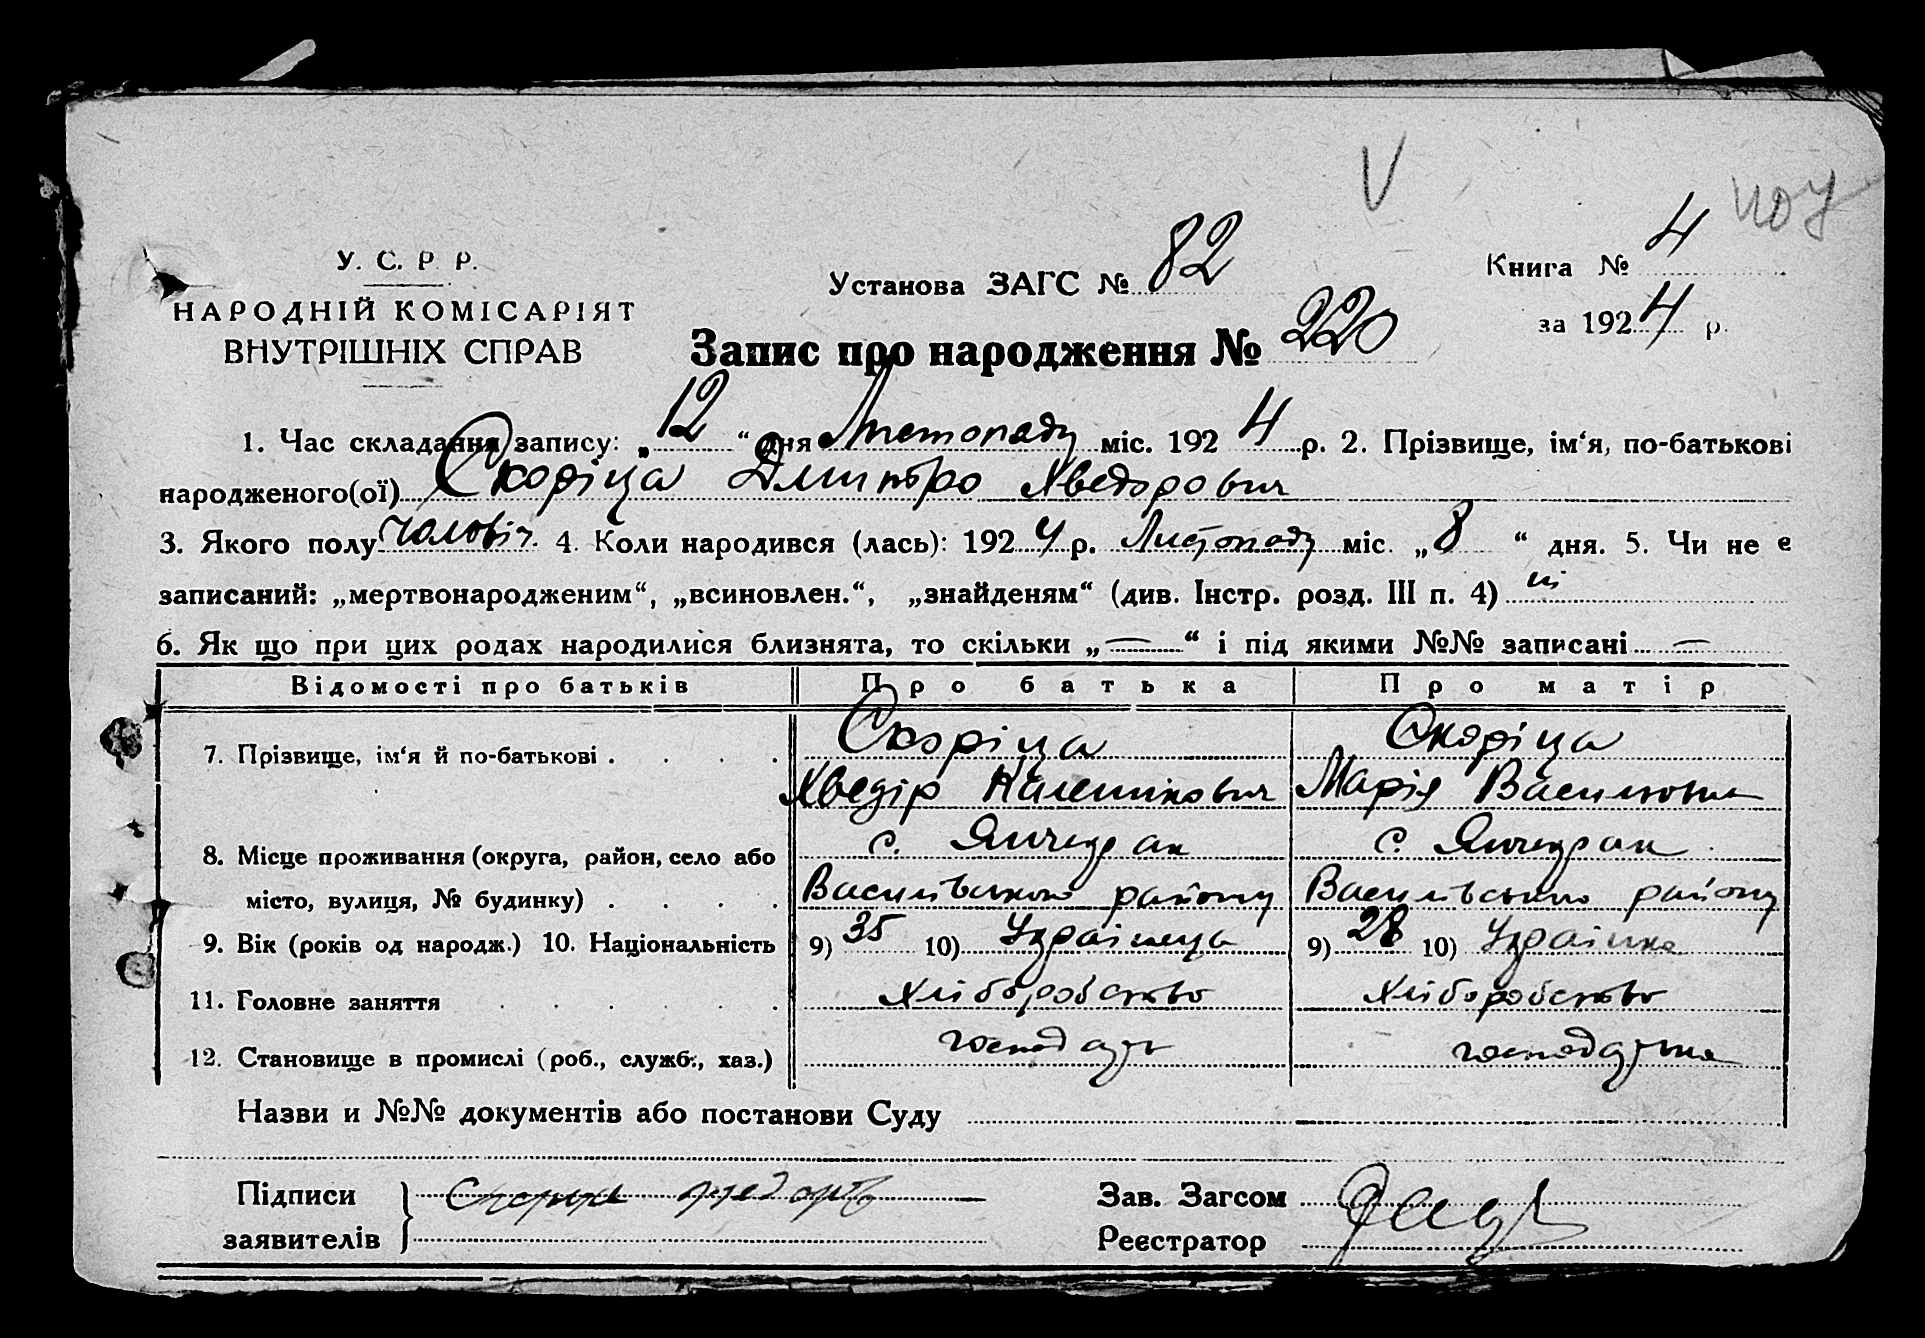 V
У. С. Р. Р.
НАРОДНІЙ КОМІСАРІЯТ
ВНУТРІШНІХ СПРАВ
Установа ЗАГС № 82
Книга № 4
за 1924 р.
Запис про народження № 220
1. Час складання запису: „12“ дня Листопаду міс. 1924 р. 2. Прізвище, ім‘я, по-батькові
народженого(ої) Скоріца Дмитро Хведорович
3. Якого полу чоловіч. 4. Коли народився (лась): 1924 р. Листопаду міс. „8“ дня. 5. Чи не є
записаний: „мертвонародженим“, „всиновлен.“, „знайденям“ (див. Інстр. розд. III п. 4) ні
6. Як що при цих родах народилися близнята, то скільки „—“ і під якими №№ записані —
Відомості про батьків Про батька Про матір
7. Прізвище, ім‘я й по-батькові . . . . Скоріца Скоріца
Хведір Марія
8. Місце проживання (округа, район, село або с. Янчекрак с. Янчекрак
місто, вулиця, № будинку) . . . . Василівського району Василівського району
9. Вік (років од народж.) 10. Національність 9) 35 10) Українець 9) 28 10) Українка
11. Головне заняття . . . . . . Хліборобство Хліборобство
12. Становище в промислі (роб., служб., хаз.) господарь господарька
Назви и №№ документів або постанови Суду
Підписи
заявителів
Зав. Загсом
Реєстратор